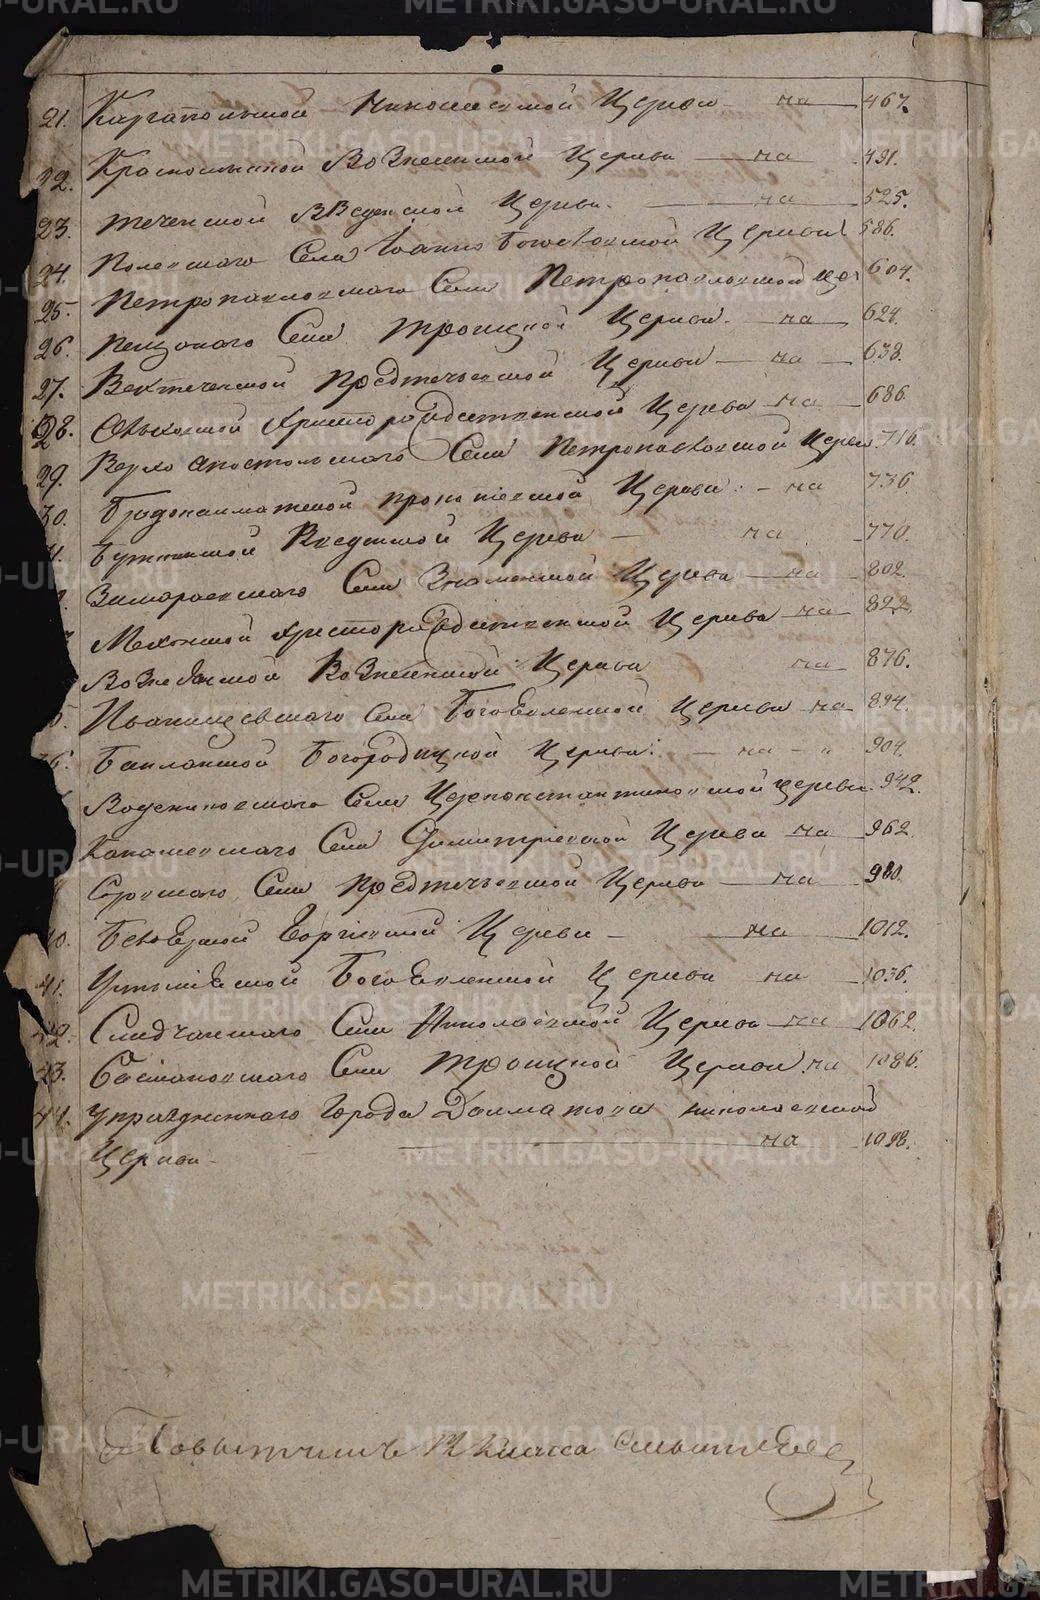 21. Каргапольской Николаевской Церкви на 467.
22. Красномыской Вознесенской Церкви на 491.
23. Теченской Введенской Церкви. на 525.
24. Полевского Села Іоанно Богословской Церкви 586.
25. Петропавловского Села Петропавловской Цер 604.
26. Пещанаго Села Троицкой Церкви на 624.
27. Верхтеченской Предтечьевской Церкви на 638.
28. Христорождественской Церкви на 686.
29. Верхо Апостольскаго Села Петропавловской Церкви 716.
30. Бродокалматской Прокопіевской Церкви на 736.
Буткинской Введенской Церкви на 770.
Села Знаменской Церкви на 802.
Мехонской Христорождественской Церкви на 822.
Вознесенской Церкви на 876.
5. Иванищевскаго Села Богоявленской Церкви на 894.
36. Бакланской Богородицкой Церкви на 904.
Воденниковскаго Села Цареконстантиновской Церкви 942.
Села Димитріевской Церкви на 962.
Села Предтечьевской Церкви на 980.
40. Белоярской Георгіевской Церкви на 1012.
41. Богоявленской Церкви на 1036.
42. Смолчанскаго Села Николаевской Церкви на 1062.
43. Села Троицкой Церкви на 1086.
44. Упраздненнаго Города Далматова Николаевской
Церкви на 1098.
Повытчикъ класса
METRIKI.GASO-URAL.RU